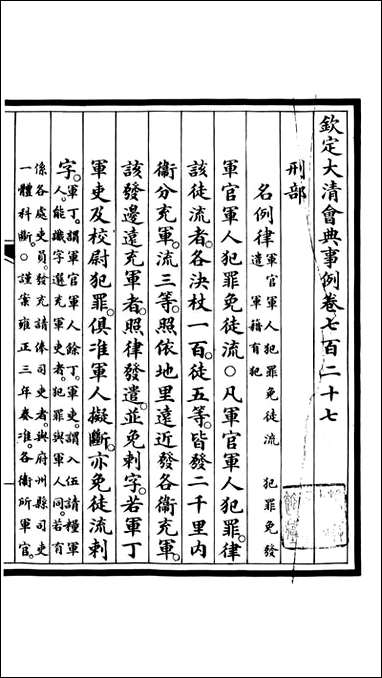 欽定大清會典事例卷七百二十七
刑部
名例律 軍官軍人犯罪免徒流 犯罪免發
遣 軍籍有犯
軍官軍人犯罪免徒流○凡軍官軍人犯罪。律
該徒流者。各決杖一百。徒五等。皆發二千里內
衞分充軍。流三等。照依地里遠近發各衞充軍。
該發邊遠充軍者。照律發遣。並免刺字。若軍丁
軍吏及校尉犯罪。俱准軍人擬斷。亦免徒流刺
字。軍丁。謂軍官軍人餘丁。軍吏。謂入伍請糧軍
人。能識字選充軍吏者。犯罪與軍人同。若有
係各處吏員。發充請俸司吏者。與府州縣司吏
一體科斷。○謹案雍正三年奏准。各衞所軍官。